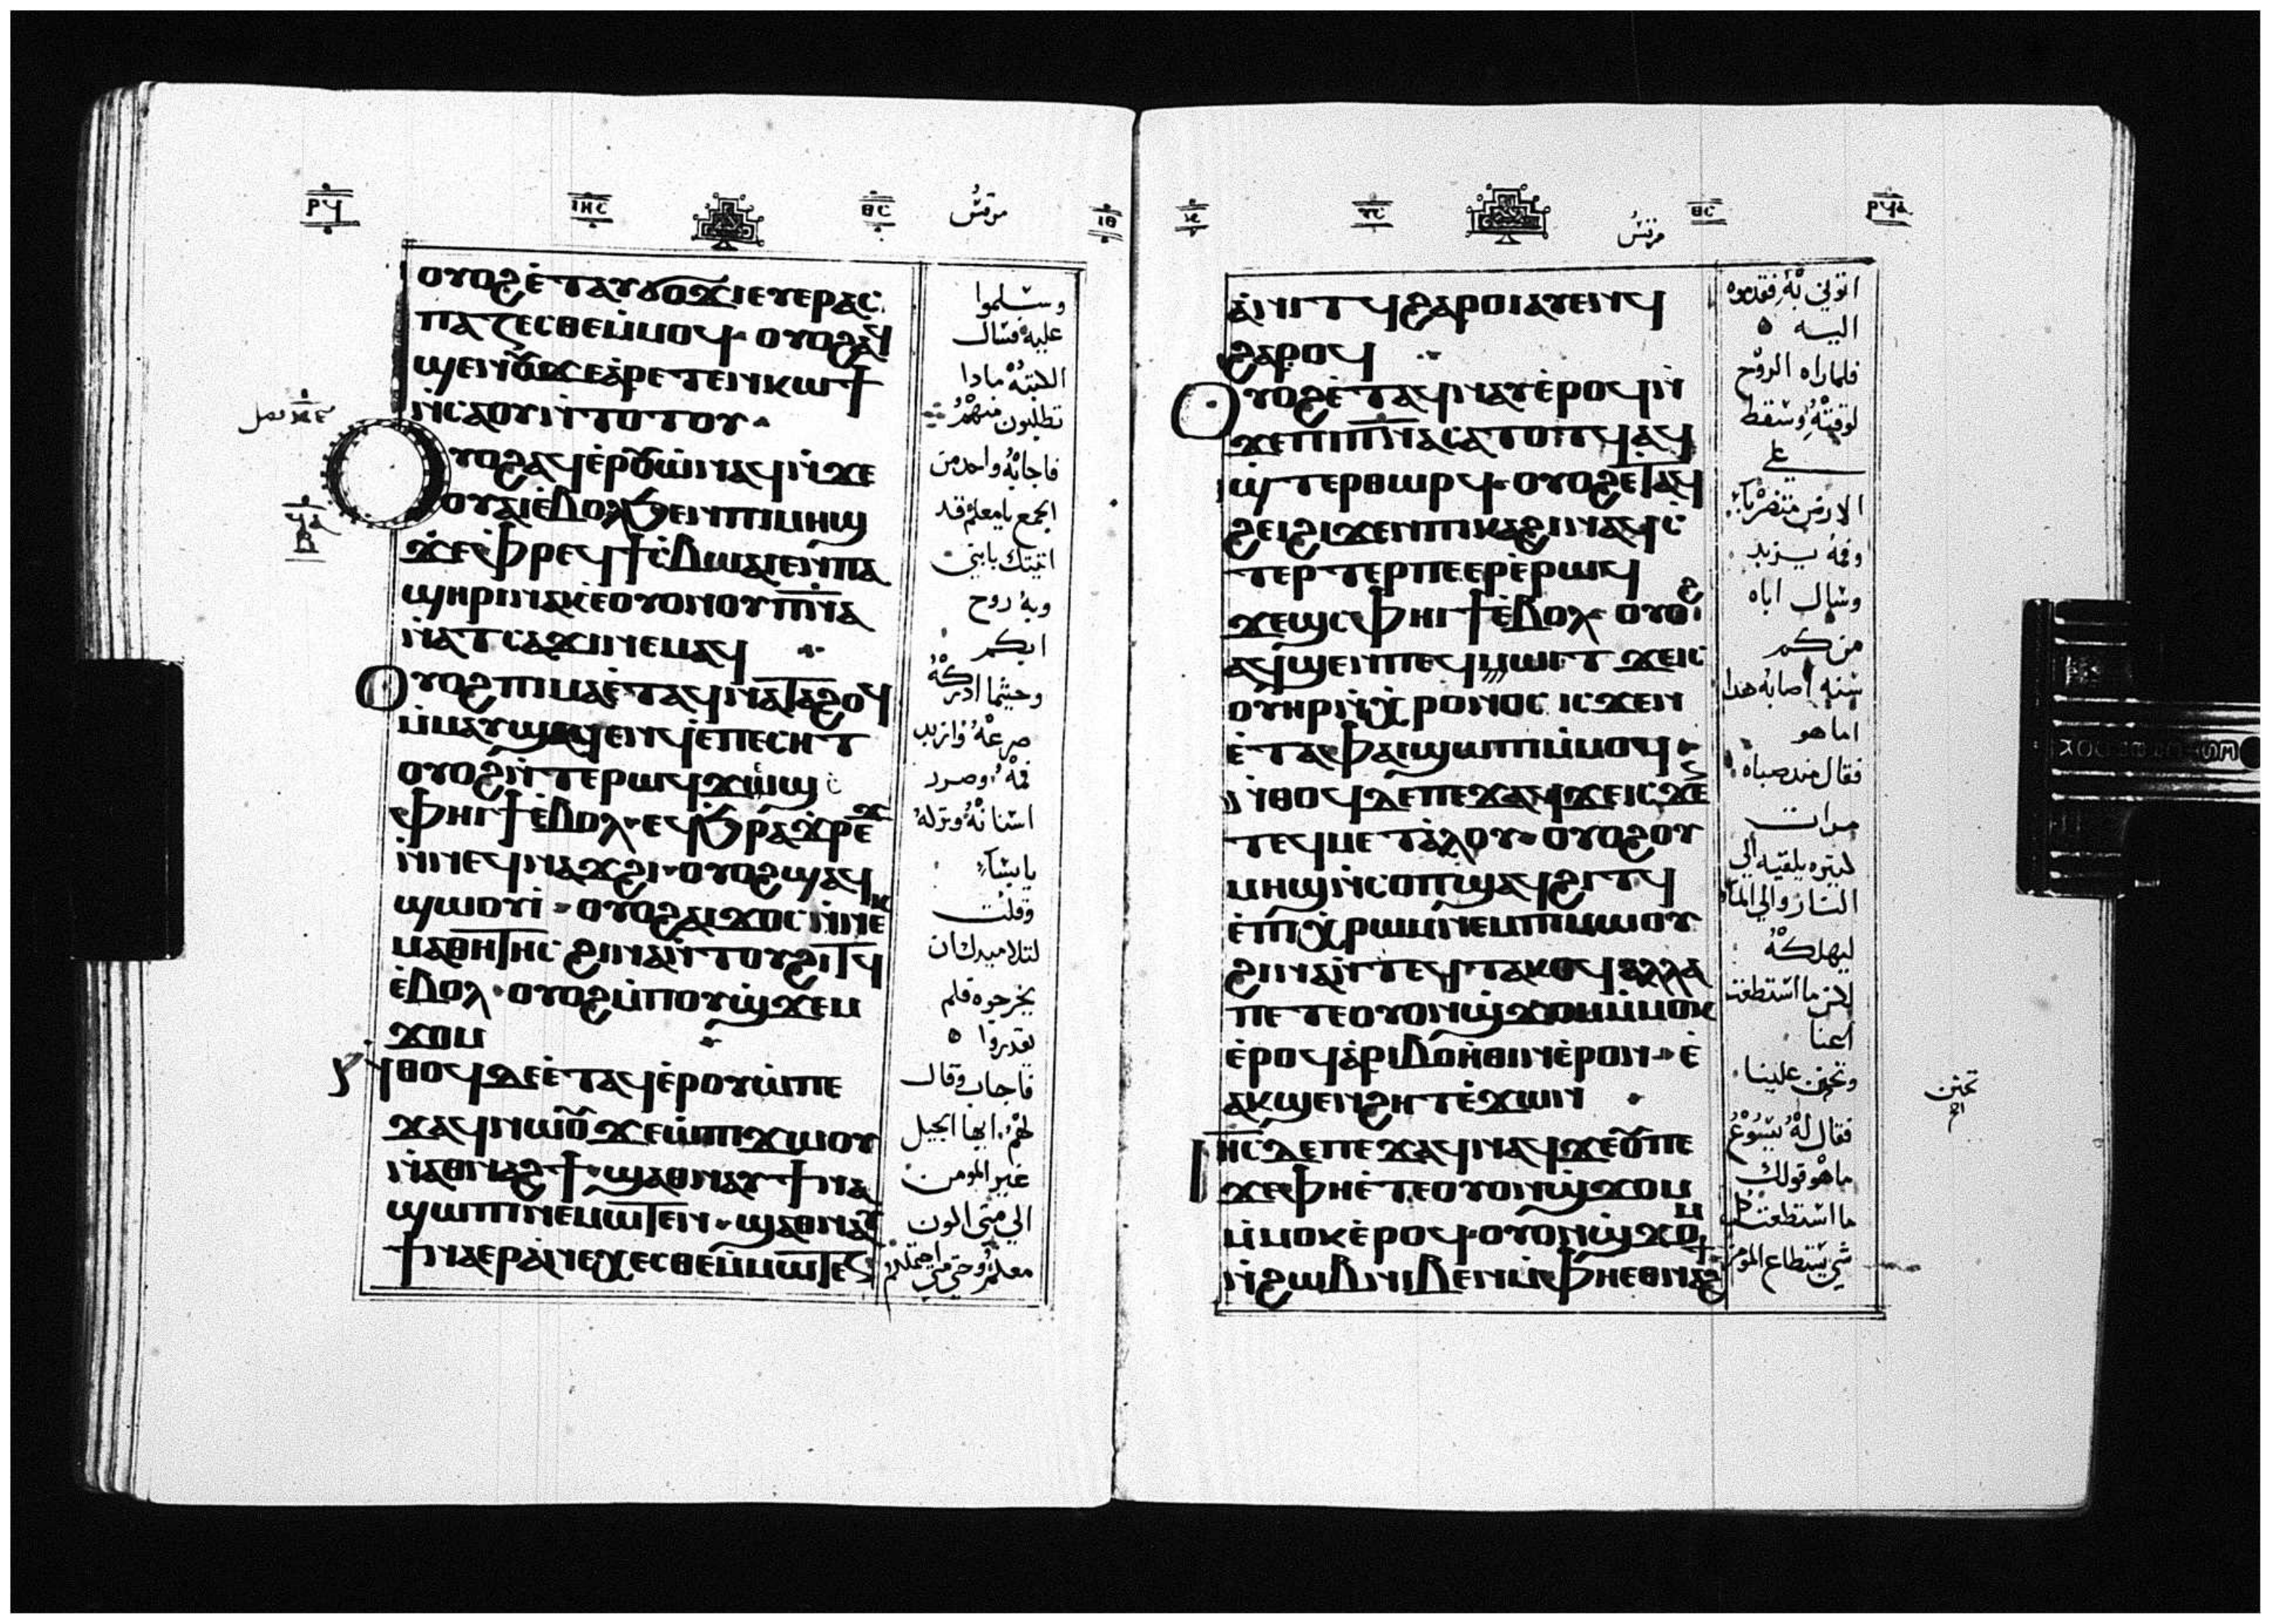 ⲣϥ ⲓⲏⲥ ⲑⲥ مرقس ⲓⲑ
ⲟⲩⲟϩ ⲉ̀ⲧⲁⲩϭⲟϫⲓ ⲉⲩⲉⲣⲁⲥ
ⲡⲁⲍⲉⲥⲑⲉ ⲙ̀ⲙⲟϥ ⲟⲩⲟϩ ⲁϥ
ϣⲉⲛⲟⲩ ϫⲉ ⲁⲣⲉⲧⲉⲛⲕⲱϯ
ⲛ̀ⲥⲁ ⲟⲩ ⲛ̀ⲧⲟⲧⲟⲩ
ⲟⲩⲟϩ ⲁϥⲉⲣⲟⲩⲱ̀ ⲛⲁϥ ⲛ̀ϫⲉ
ⲟⲩⲁⲓ ⲉ̀ⲃⲟⲗ ϧⲉⲛ ⲡⲓⲙⲏϣ
ϫⲉ ⲫⲣⲉϥϯⲥ̀ⲃⲱ ⲁⲓⲉⲛ ⲡⲁ
ϣⲏⲣⲓ ⲛⲁⲕ ⲉⲟⲩⲟⲛ ⲟⲩⲡ̅ⲛ̅ⲁ
ⲛ̀ⲁⲧⲥⲁϫⲓ ⲛⲉⲙⲁϥ
ⲟⲩⲟϩ ⲡⲓⲙⲁ ⲉ̀ⲧⲁϥⲛⲁⲧⲁϩⲟϥ
ⲙ̀ⲙⲁⲩ ϣⲁϥⲉⲛϥ ⲉ̀ⲡⲉⲥⲏⲧ
ⲟⲩⲟϩ ⲛ̀ⲧⲉ ⲣⲱϥ ϫⲱⲱϣ
ⲥⲫⲏⲓϯ ⲉ̀ⲃⲟⲗ ⲉϥϧ̀ⲣⲁϫⲣⲉϫ
ⲛ̀ⲛⲉϥⲛⲁϫϩⲓ ⲟⲩⲟϩ ϣⲁϥ
ϣⲱⲟⲩⲓ̀ ⲟⲩⲟϩ ⲁⲓϫⲟⲥ ⲛ̀ⲛⲉⲕ
ⲙⲁⲑⲏⲧⲏⲥ ϩⲓⲛⲁ ⲛ̀ⲧⲟⲩϩⲓⲧϥ
ⲉ̀ⲃⲟⲗ ⲟⲩⲟϩ ⲙ̀ⲡⲟⲩϣ̀ϫⲉⲙ
ϫⲟⲙ
ⲛ̀ⲑⲟϥ ⲇⲉ ⲉ̀ⲧⲁϥⲉ̀ⲣⲟⲩⲱ̀ ⲡⲉ
ϫⲁϥ ⲛⲱⲟⲩ ϫⲉ ⲱ̀ ⲡⲓϫⲱⲟⲩ
ⲛ̀ⲁⲑⲛⲁϩϯ ϣⲁⲑⲛⲁⲩ ϯⲛⲁ
ϣⲱⲡⲓ ⲛⲉⲙⲱⲧⲉⲛ ϣⲁⲑⲛⲁⲩ
ϯⲛⲁⲉⲣⲁ̀ⲛⲉⲭⲉⲥⲑⲉ ⲙ̀ⲙⲱⲧⲉⲛ
وسلموا
عليه فسال
الكتبه مادا
تطلبون منهم
فاجابه واحد من
الجمع يا معلم قد
اتيتك بابني
وبه روح
ابكم
وحيثما ادركه
صرعه وازبد
فمه وصرد
اسنانه وتركه
يابسا
وقلت
لتلاميدك ان
يخرجوه فلم
يقدروا ه
فاجاب وقال
لهم ايها الجيل
غير المومن
الي متي اكون
معكم وحتي متي احتملكم
فصل
ϥⲁ
ⲓⲥ ⲩⲥ مرقس ⲑⲥ ⲣϥⲁ
ⲁ̀ⲛⲓⲧϥ ϩⲁⲣⲟⲓ ⲁⲩⲉⲛϥ
ϩⲁⲣⲟϥ
ⲟⲩⲟϩ ⲉ̀ⲧⲁϥⲛⲁⲩ ⲉ̀ⲣⲟϥ ⲛ̀
ϫⲉ ⲡⲓⲡ̅ⲛ̅ⲁ ⲥⲁⲧⲟⲧϥ ⲁϥ
ϣ̀ⲧⲉⲣⲑⲱⲣϥ ⲟⲩⲟϩ ⲉⲧⲁϥ
ϩⲉⲓ ϩⲓϫⲉⲛ ⲡⲓⲕⲁϩⲓ ⲛⲁϥⲥ̀
ⲧⲉⲣⲧⲉⲣ ⲡⲉ ⲉⲣⲉ̀ ⲣⲱϥ
ϫⲉϣ ⲥⲫⲏⲓϯ ⲉ̀ⲃⲟⲗ ⲟⲩⲟϩ
ⲁϥϣⲉⲛ ⲡⲉϥⲓⲱⲧ ϫⲉ ⲓⲥ
ⲟⲩⲏⲣ ⲛ̀ⲭⲣⲟⲛⲟⲥ ⲓⲥϫⲉⲛ
ⲉ̀ⲧⲁ ⲫⲁⲓ ϣⲱⲡⲓ ⲙ̀ⲙⲟϥ
ⲛ̀ⲑⲟϥ ⲇⲉ ⲡⲉϫⲁϥ ϫⲉ ⲓⲥϫⲉ
ⲧⲉϥⲙⲉⲧⲁ̀ⲗⲟⲩ ⲟⲩⲟϩ ⲟⲩ
ⲙⲏϣ ⲛ̀ⲥⲟⲡ ϣⲁϥϩⲓⲧϥ
ⲉ̀ⲡⲓⲭ̀ⲣⲱⲙ ⲛⲉⲙ ⲡⲓⲙⲱⲟⲩ
ϩⲓⲛⲁ ⲛ̀ⲧⲉϥⲧⲁⲕⲟϥ ⲁⲗⲗⲁ
ⲡⲉⲧⲉ ⲟⲩⲟⲛ ϣ̀ϫⲟⲙ ⲙ̀ⲙⲟⲕ
ⲉ̀ⲣⲟϥ ⲁ̀ⲣⲓⲃⲟⲏ̀ⲑⲓⲛ ⲉ̀ⲣⲟⲛ ⲉ̀
ⲁⲕϣⲉⲛϩⲏⲧ ⲉ̀ϫⲱⲛ
ⲓⲏⲥ ⲇⲉ ⲡⲉϫⲁϥ ⲛⲁϥ ϫⲉ ⲟⲩ ⲡⲉ
ϫⲉ ⲫⲏⲉ̀ⲧⲉ ⲟⲩⲟⲛ ϣ̀ϫⲟⲙ
ⲙ̀ⲙⲟⲕ ⲉ̀ⲣⲟϥ ⲟⲩⲟⲛ ϣ̀ϫⲟⲙ
ⲛ̀ϩⲱⲃ ⲛⲓⲃⲉⲛ ⲙ̀ⲫⲏⲉⲑⲛⲁϩϯ
اتوني به فقدموه
اليه ه
فلما راه الروح
لوقته وسقط
علي
الارض متضربا
وفمه يزبد
وسال اباه
من كم
سنه اصابه هدا
اما هو
فقال مند صباه
مرات
كتيره يلقيه الي
النار والي الما
ليهلكه
لكن ما استطعت
اعنا
وتحنن علينا
فقال له يسوع
ما هو قولك
ما استطعت كل
شي يستطاع المومن
تحنن